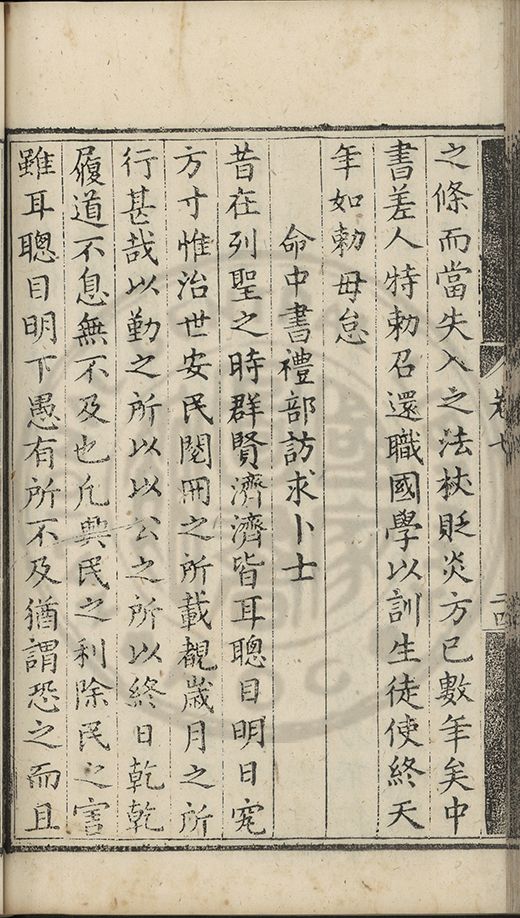 之條而當失入之法杖貶炎方已數年矣中
書差人特勅召還職國學以訓生徒使終天
年如勅毋怠
命中書禮部訪求卜士
昔在列聖之時群賢濟濟皆耳聰目明日究
方寸惟治世安民閱冊之所載觀歲月之所
行甚哉以勤之所以以公之所以終日乾乾
履道不息無不及也凢興民之利除民之害
雖耳聰目明下愚有所不及猶謂恐之而且
卷七
二四